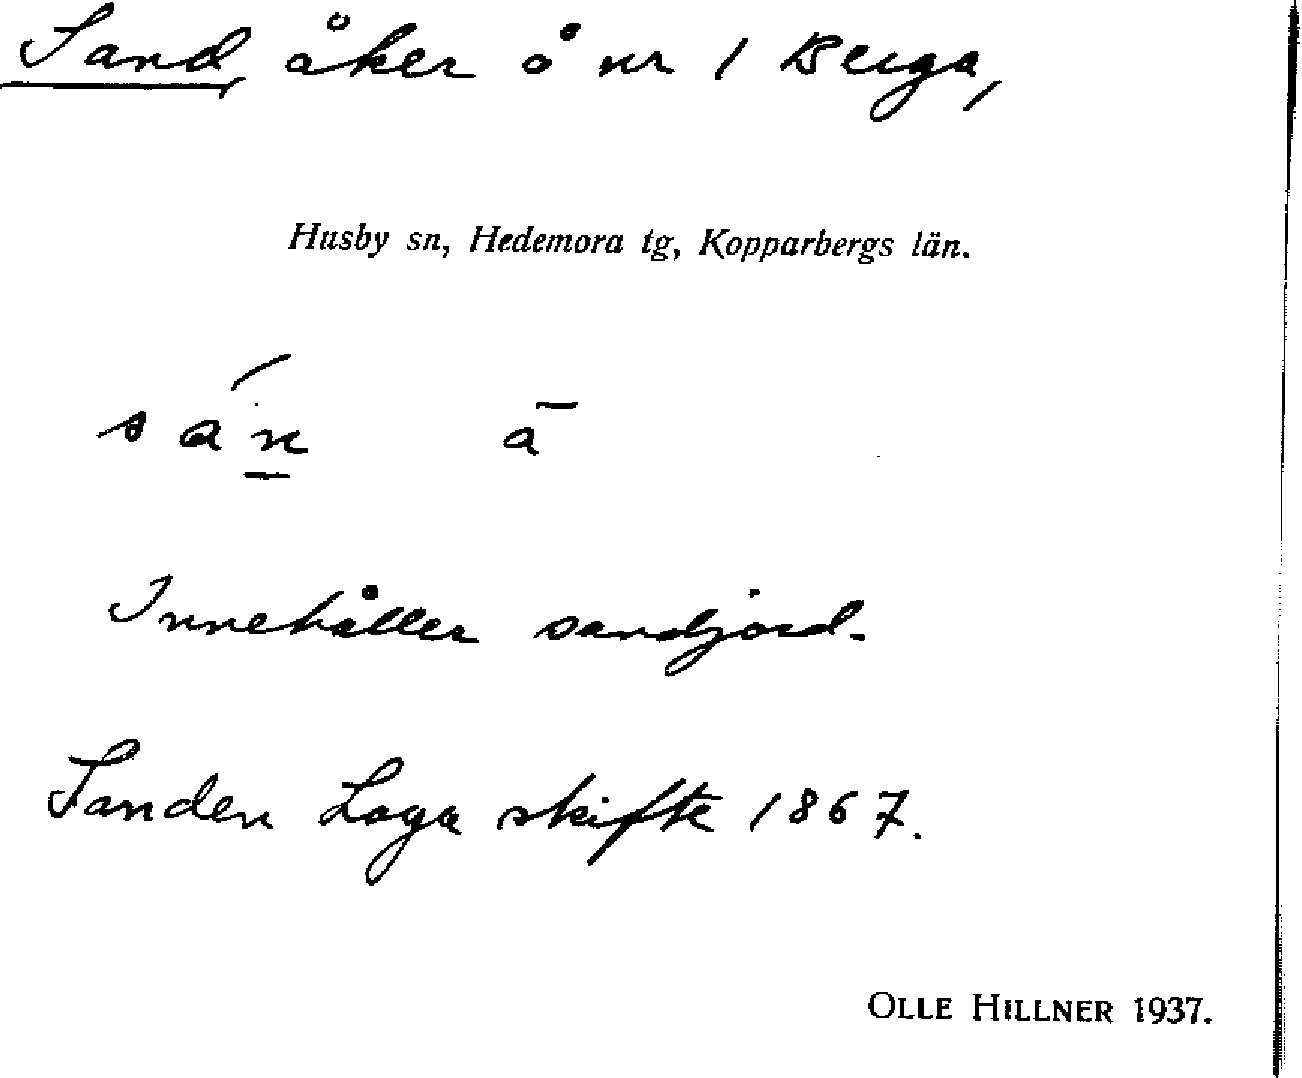 Sand, åker å nr 1 Berga,
Husby sn, Hedemora tg, Kopparbergs län.
saṉ́ ā
Innehåller sandjord.
Sanden Laga skifte 1867.
OLLE HILLNER 1937.